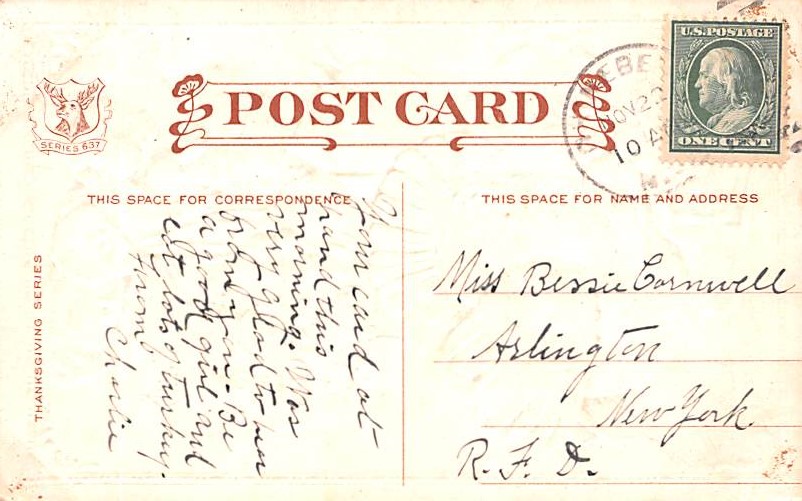 U.S. POSTAGE
ONE CENT
NOV 2
10 A
POST CARD
SERIES 637
THIS SPACE FOR CORRESPONDENCE
THIS SPACE FOR NAME AND ADDRESS
THANKSGIVING SERIES
Your card at
hand this
morning. Was
very glad to hear
from you. Be
a good girl and
eat lots of turkey.
From
Charlie
Miss Bessie Cornwell
Arlington
New York
R. F. D.